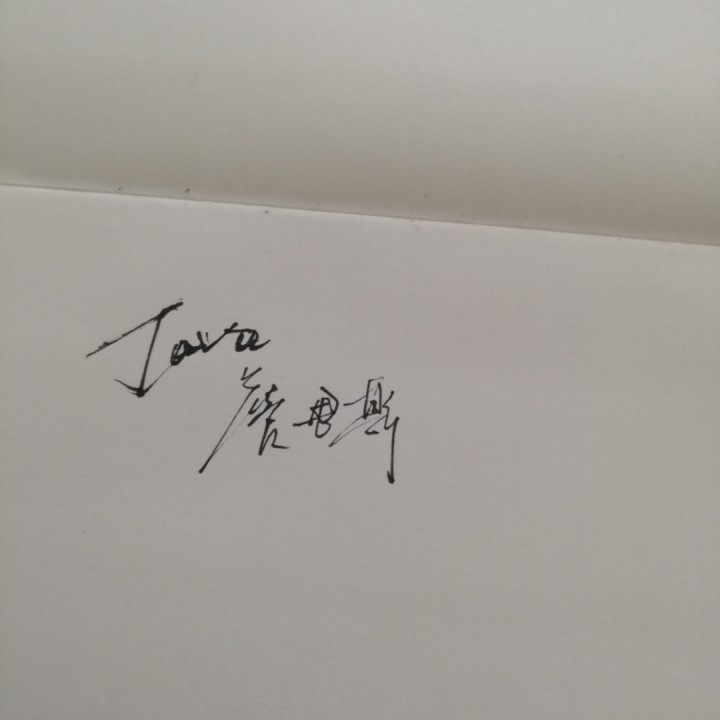 Java
詹姆斯